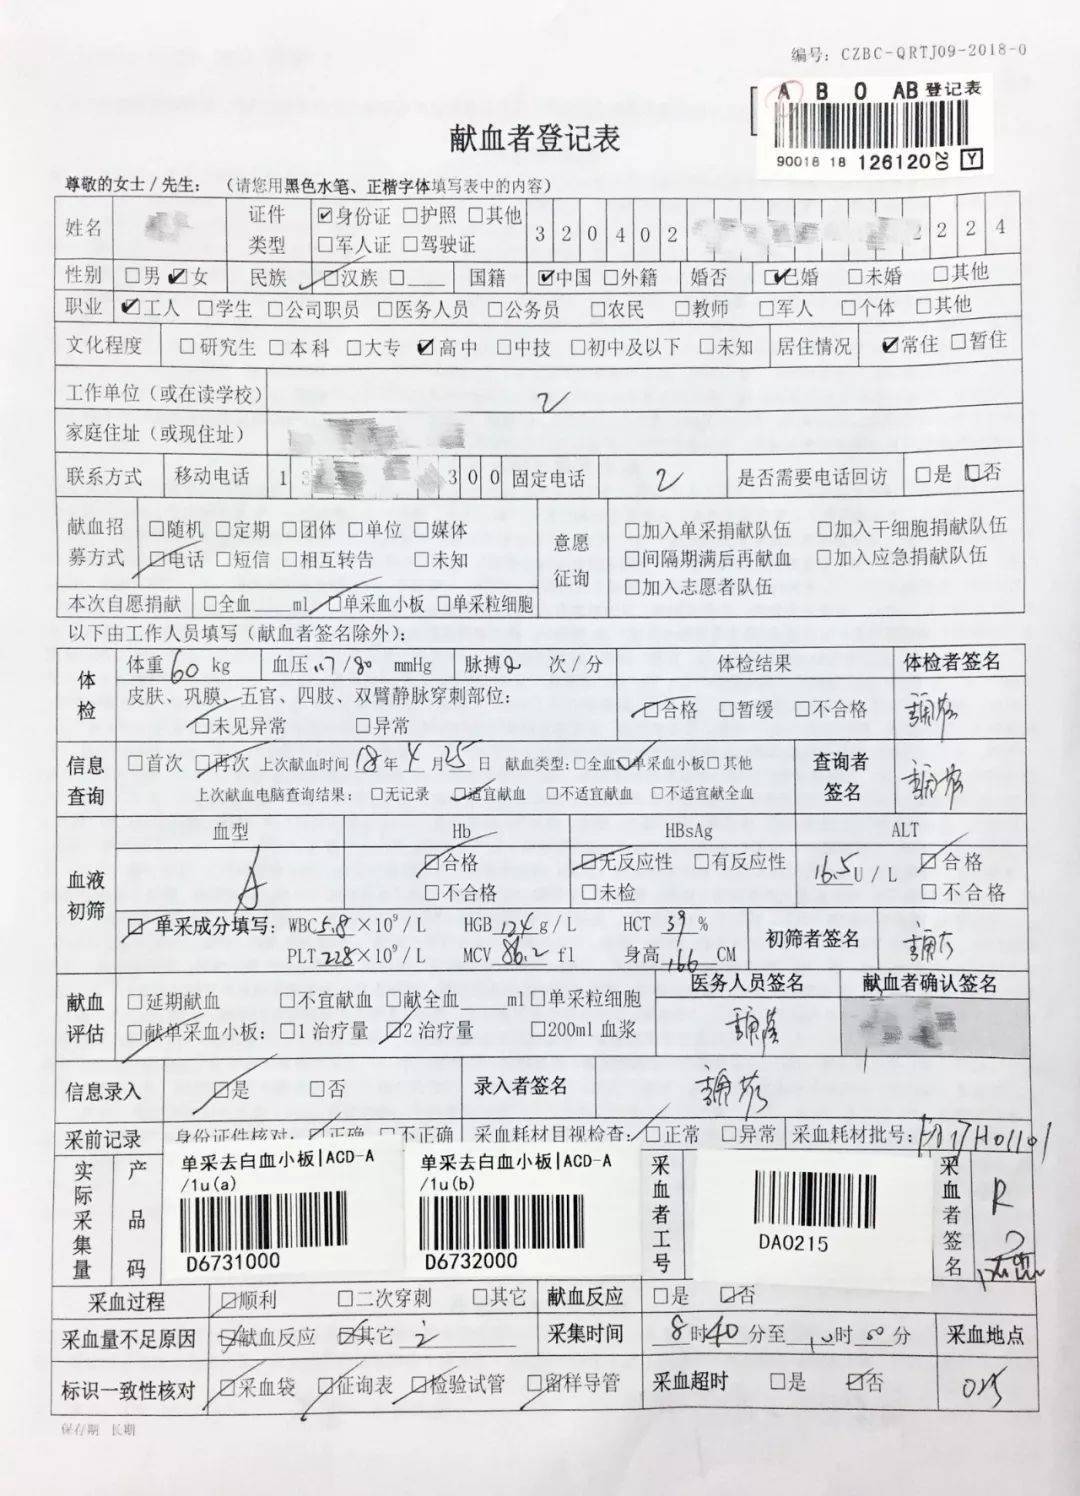 编号: CZBC-QRTJ09-2018-0
A B O AB 登记表
90018 18 126120 20 Y
献血者登记表
尊敬的女士/先生： （请您用黑色水笔、正楷字体填写表中的内容）
姓名 证件类型 ☑身份证 □护照 □其他 □军人证 □驾驶证 320402 2224
性别 □男 ☑女 民族 ☑汉族 □____ 国籍 ☑中国 □外籍 婚否 ☑已婚 □未婚 □其他
职业 ☑工人 □学生 □公司职员 □医务人员 □公务员 □农民 □教师 □军人 □个体 □其他
文化程度 □研究生 □本科 □大专 ☑高中 □中技 □初中及以下 □未知 居住情况 ☑常住 □暂住
工作单位（或在读学校）
家庭住址（或现住址）
联系方式 移动电话 1 300 固定电话 是否需要电话回访 □是 ☑否
献血招募方式 □随机 □定期 □团体 □单位 □媒体
☑电话 □短信 □相互转告 □未知
意愿征询 □加入单采捐献队伍 □加入干细胞捐献队伍
□间隔期满后再献血 □加入应急捐献队伍
□加入志愿者队伍
本次自愿捐献 □全血____ml ☑单采血小板 □单采粒细胞
以下由工作人员填写（献血者签名除外）：
体检 体重60kg 血压117/80 mmHg 脉搏 次/分 体检结果 体检者签名
皮肤、巩膜、五官、四肢、双臂静脉穿刺部位：
☑未见异常 □异常 ☑合格 □暂缓 □不合格
信息查询 □首次 ☑再次 上次献血时间18年4月25日 献血类型：□全血☑单采血小板□其他 查询者签名
上次献血电脑查询结果： □无记录 ☑适宜献血 □不适宜献血 □不适宜献全血
血液初筛 血型 Hb HBsAg ALT
A ☑合格 □不合格 ☑无反应性 □有反应性 □未检 16.5U/L ☑合格 □不合格
☑单采成分填写：WBC5.8×10⁹/L HGB124g/L HCT 39%
PLT228×10⁹/L MCV86.2fl 身高166CM 初筛者签名
献血评估 □延期献血 □不宜献血 □献全血____ml □单采粒细胞 医务人员签名 献血者确认签名
☑献单采血小板：□1治疗量 ☑2治疗量 □200ml血浆
信息录入 ☑是 □否 录入者签名
采前记录 身份证件核对：☑正确 □不正确 采血耗材目视检查：☑正常 □异常 采血耗材批号：
实际采集量 产品码
单采去白血小板|ACD-A
/1u(a)
D6731000
单采去白血小板|ACD-A
/1u(b)
D6732000
采血者工号
DA0215
采血者签名
采血过程 ☑顺利 □二次穿刺 □其它 献血反应 □是 ☑否
采血量不足原因 ☑献血反应 ☑其它 采集时间 8时40分至 时 分 采血地点
标识一致性核对 ☑采血袋 ☑征询表 ☑检验试管 ☑留样导管 采血超时 □是 ☑否
保存期 长期